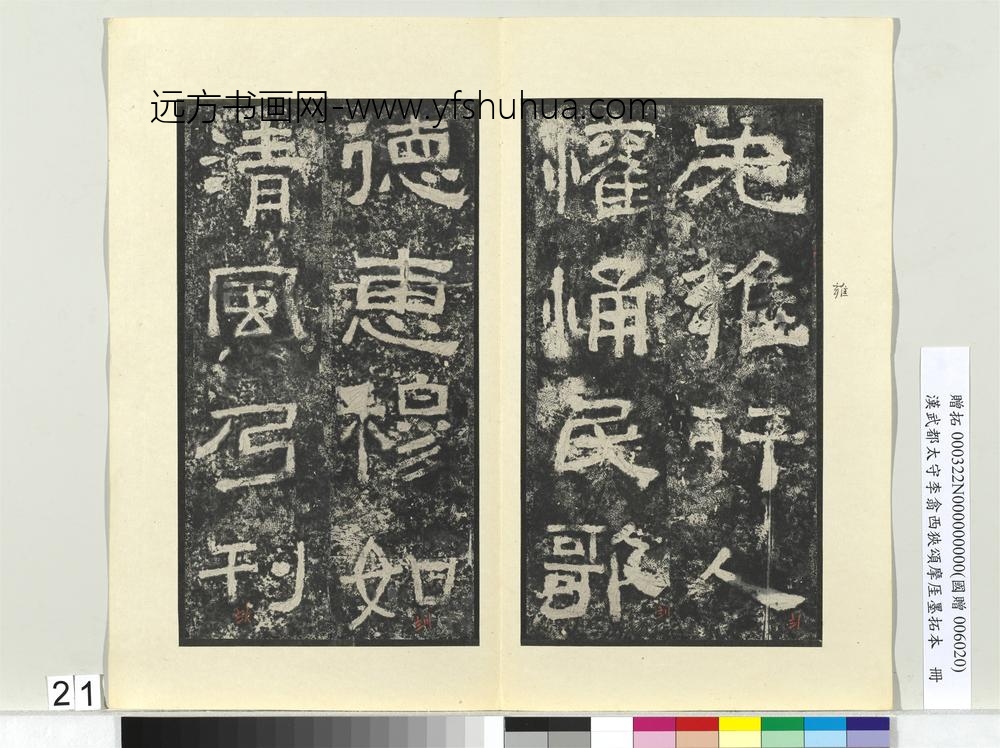 远方书画网-www.yfshuhua.com
无雍行人
懽悀民歌
德惠穆如
清風乃刊
雍
贈拓 000322N000000000(國贈 006020)
漢武都太守李翕西狹頌摩厓墨拓本 冊
21